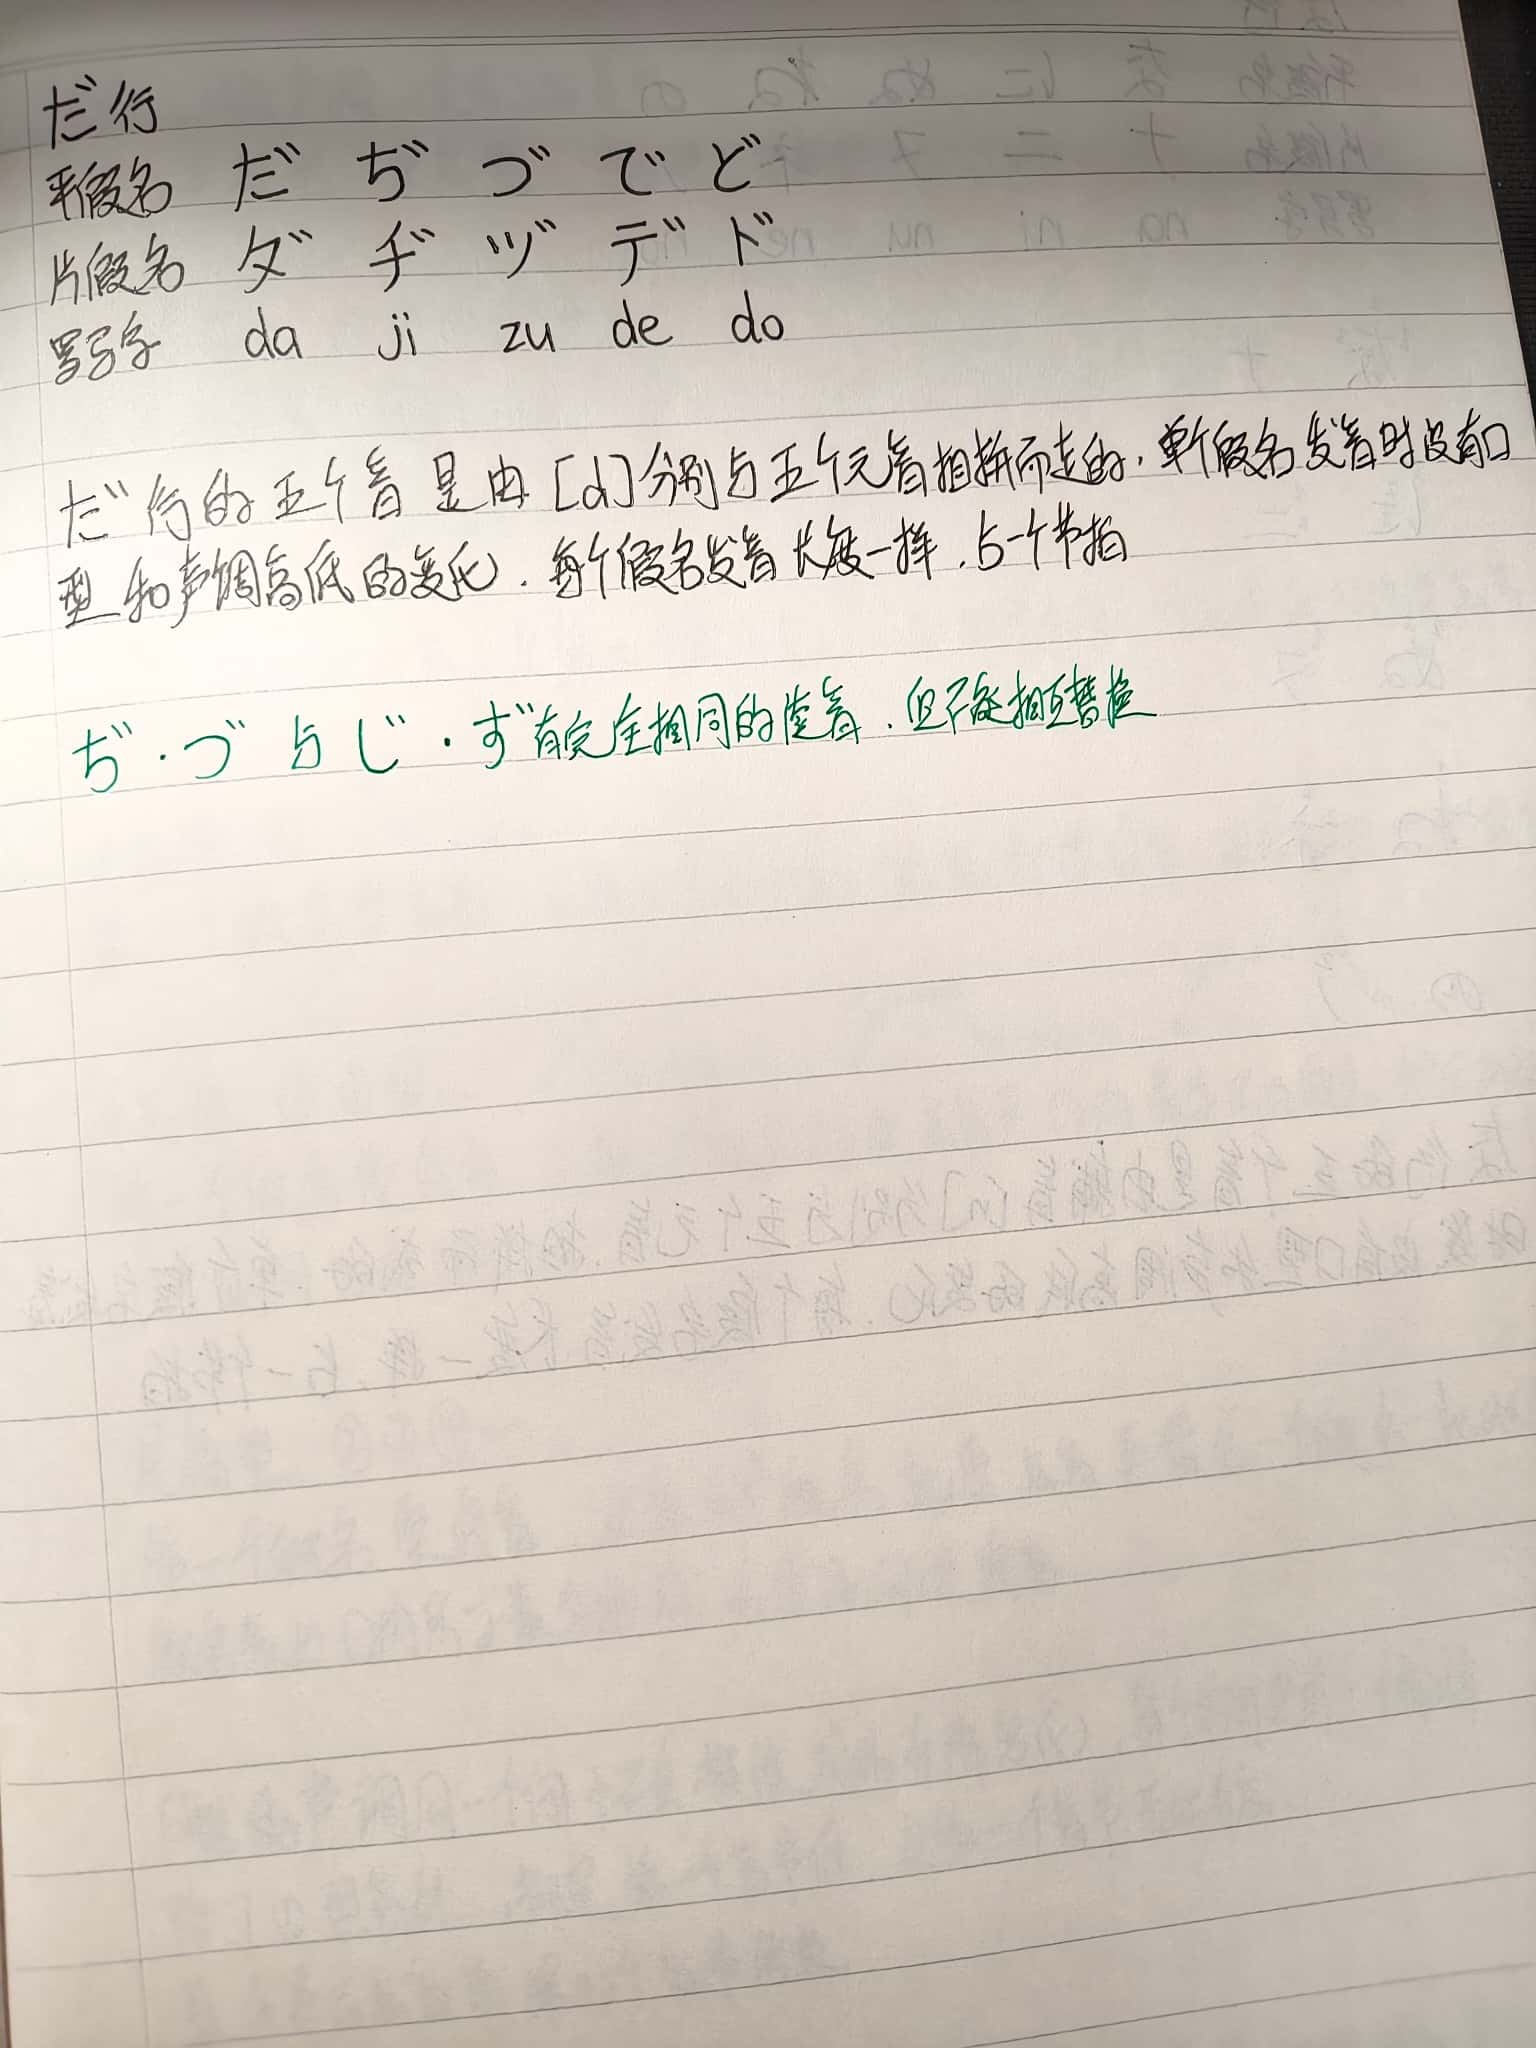 だ行
平假名 だ ぢ づ で ど
片假名 ダ ヂ ヅ デ ド
罗马字 da ji zu de do
だ行的五个音是由[d]分别与五个元音相拼而走的,单个假名发音时没有口
型和声调高低的变化.每个假名发音长度一样,占一个节拍
ぢ·づ与じ·ず有完全相同的读音.但不能相互替换